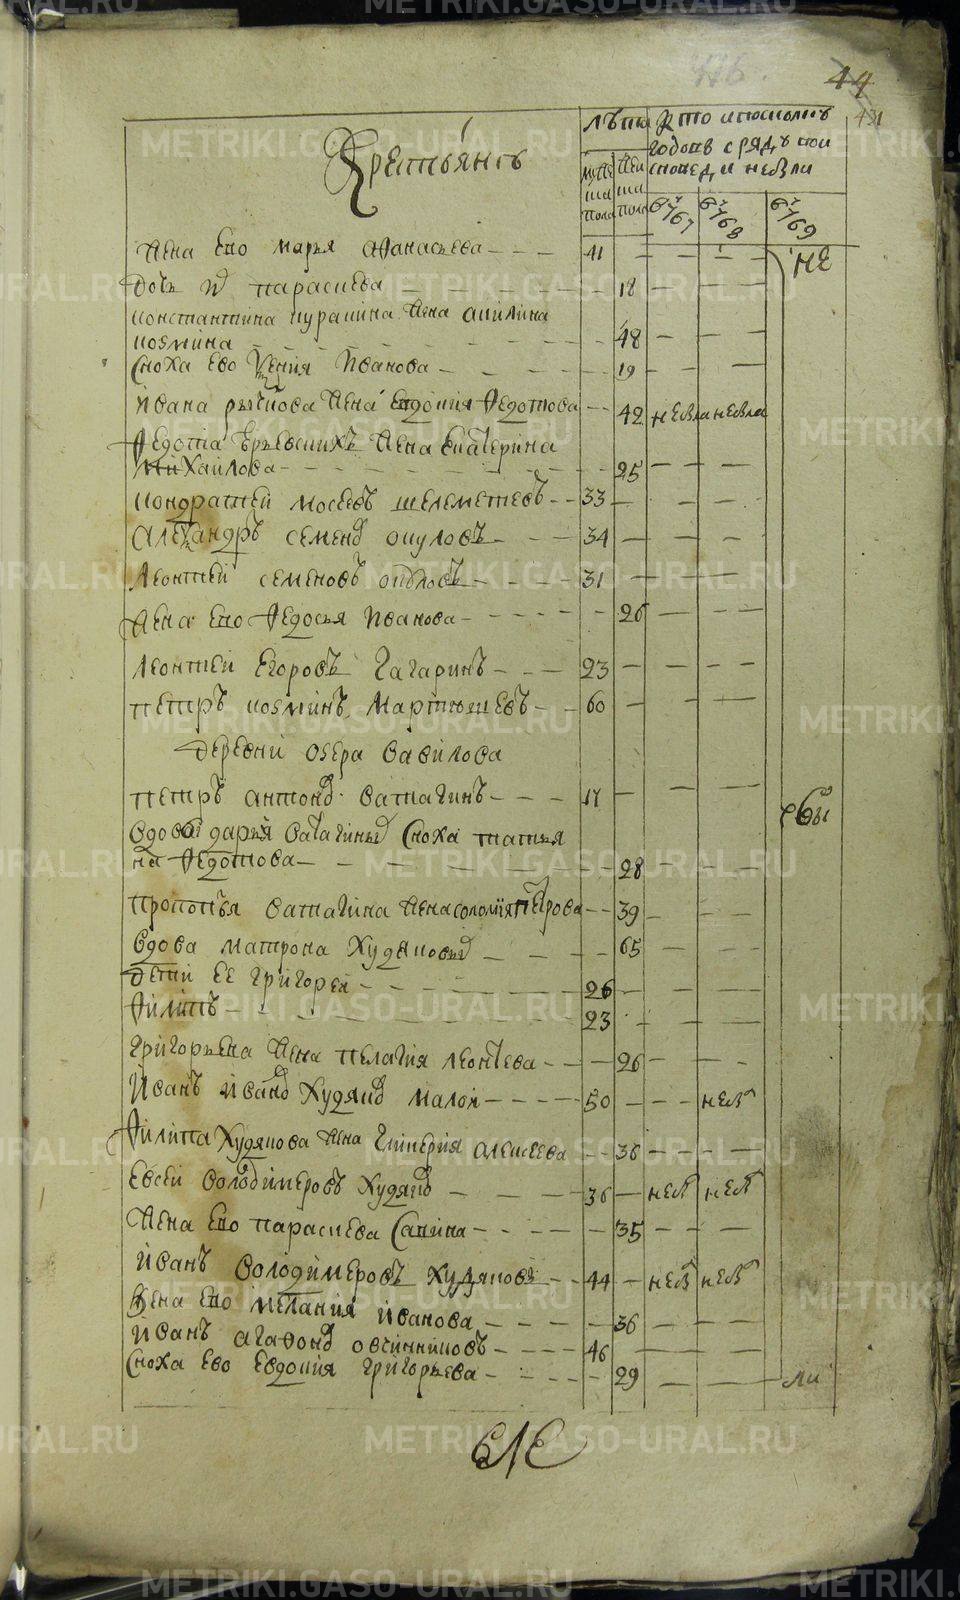 44
431
Крестьянъ
лѣта
кто и коихъ
годовъ сряду на
исповеди не были
муже
ска
пола
жен
ска
пола
767
768
769
Жена ево марья афанасьева - - - 41 — — — не
дочь их парасковья 18 — — —
константина жена акилина
козмина 48 — — —
сноха ево Ксения Иванова 19 — — —
Ивана рычкова жена Евдокия Федотова 42 не была не была
Федота жена Екатерина
Михайлова 25 — — —
кондратей мосеевъ шелеметевъ 33 — — —
Александръ семенов окуловъ 34 — — —
Леонтей семеновъ 31 — — —
Жена ево Федосья Иванова 26 — — —
Леонтей Егоровъ Гагаринъ 23 — — —
петръ козминъ Мартюшевъ 60 — — —
деревни озера Вавилова
петръ антонов Ватагинъ 17 — — — бы
вдовы дарьи Ватагины сноха татья
на Федотова 28 — — —
прокопья ватагина жена соломия петрова 39 — — —
вдова матрона Худякова 65 — — —
дети ее григорей 26 — — —
Филипъ 23 — — —
григорьева жена пелагия леонтева 26 — — —
Иванъ Иванов Худяков малой 50 — — не был
Филипа Худякова жена Гликерия алексеева 36 — — —
Евсей володимеровъ Худяков 36 — не был не был
Жена ево параскева Савина 35 — — —
Иванъ володимеровъ худяковъ 44 — не был не был
Жена ево мелания Иванова 36 — — —
Иванъ агафонов овчинниковъ 46 — — —
сноха ево Евдокия григорьева 29 — — — ли
METRIKI.GASO-URAL.RU